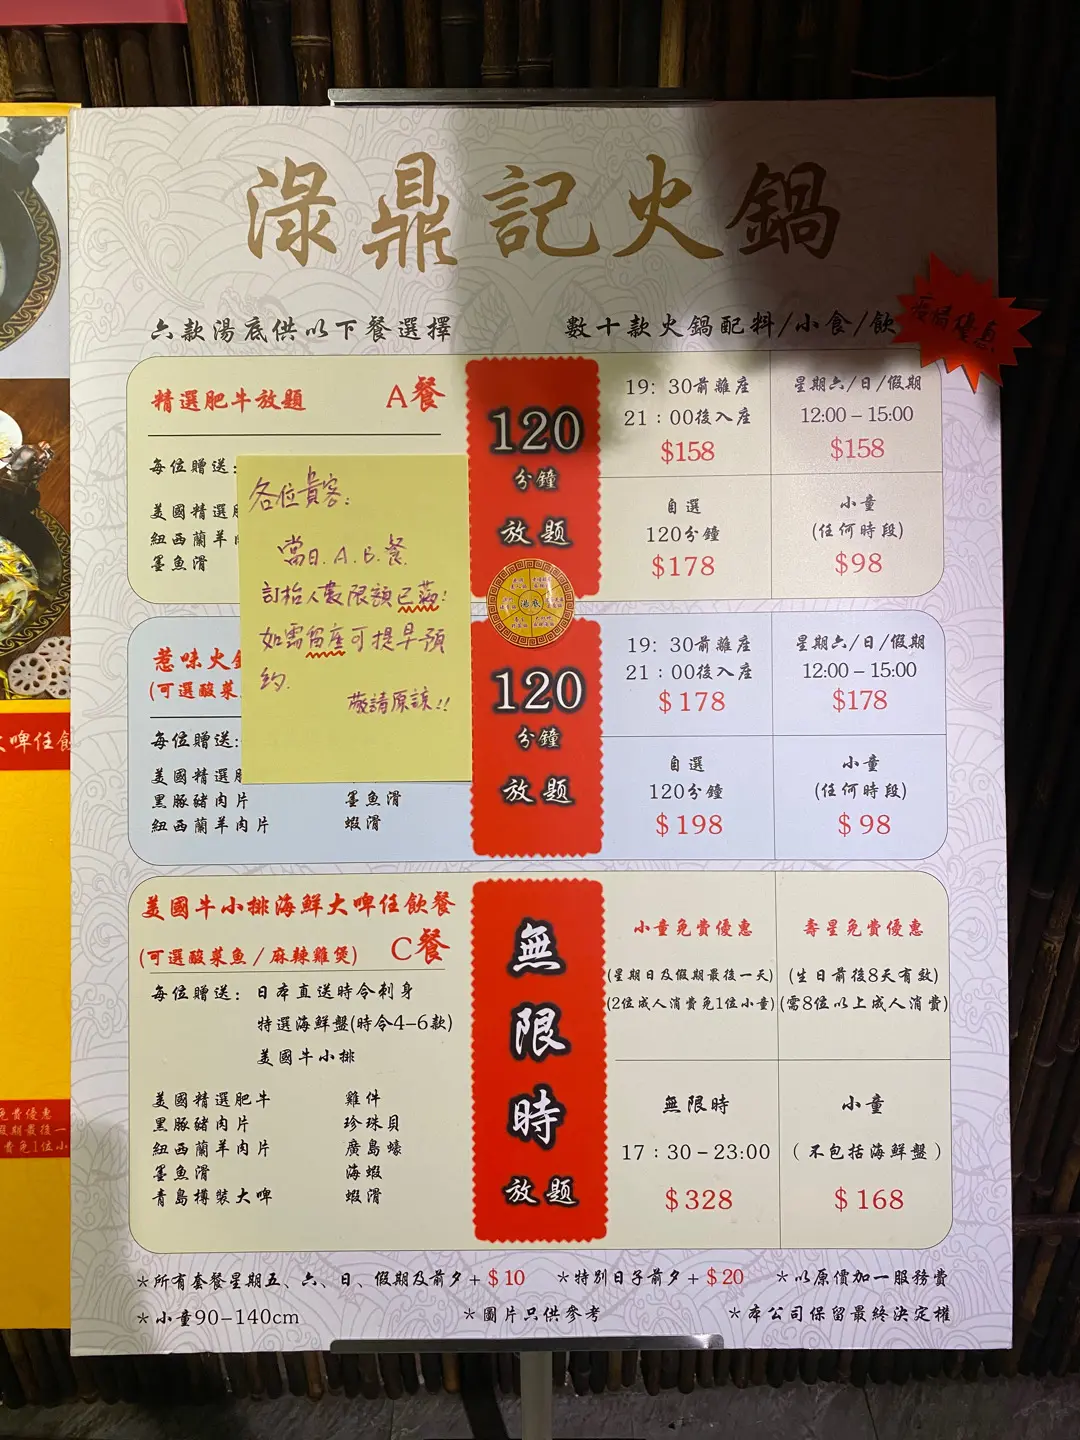 淥鼎記火鍋
六款湯底供以下餐選擇
數十款火鍋配料/小食/飲
疫情優惠
精選肥牛放題 A餐
每位贈送:
美國精選肥
紐西蘭羊
墨魚滑
120
分鐘
放題
19: 30前離座
21：00後入座
$158
星期六/日/假期
12:00 – 15:00
$158
自選
120分鐘
$178
小童
(任何時段)
$98
各位貴客:
當日.A.B.餐.
訂枱人數限額已滿!
如需留座可提早預
約.
敬請原諒!!
湯底
惹味火鍋
(可選酸菜
每位贈送:
美國精選肥
黑豚豬肉片 墨魚滑
紐西蘭羊肉片 蝦滑
120
分鐘
放題
19: 30前離座
21：00後入座
$178
星期六/日/假期
12:00 – 15:00
$178
自選
120分鐘
$198
小童
(任何時段)
$98
美國牛小排海鮮大啤任飲餐
(可選酸菜魚/麻辣雞煲) C餐
每位贈送: 日本直送時令刺身
特選海鮮盤(時令4–6款)
美國牛小排
美國精選肥牛 雞件
黑豚豬肉片 珍珠貝
紐西蘭羊肉片 廣島蠔
墨魚滑 海蝦
青島樽裝大啤 蝦滑
無
限
時
放題
小童免費優惠
(星期日及假期最後一天)
(2位成人消費免1位小童)
壽星免費優惠
(生日前後8天有效)
(需8位以上成人消費)
無限時
17：30–23:00
$328
小童
(不包括海鮮盤)
$168
*所有套餐星期五、六、日、假期及前夕+$10 *特別日子前夕+$20 *以原價加一服務費
*小童90–140cm *圖片只供參考 *本公司保留最終決定權
啤任飲
免費優惠
假期最後一
費免1位小